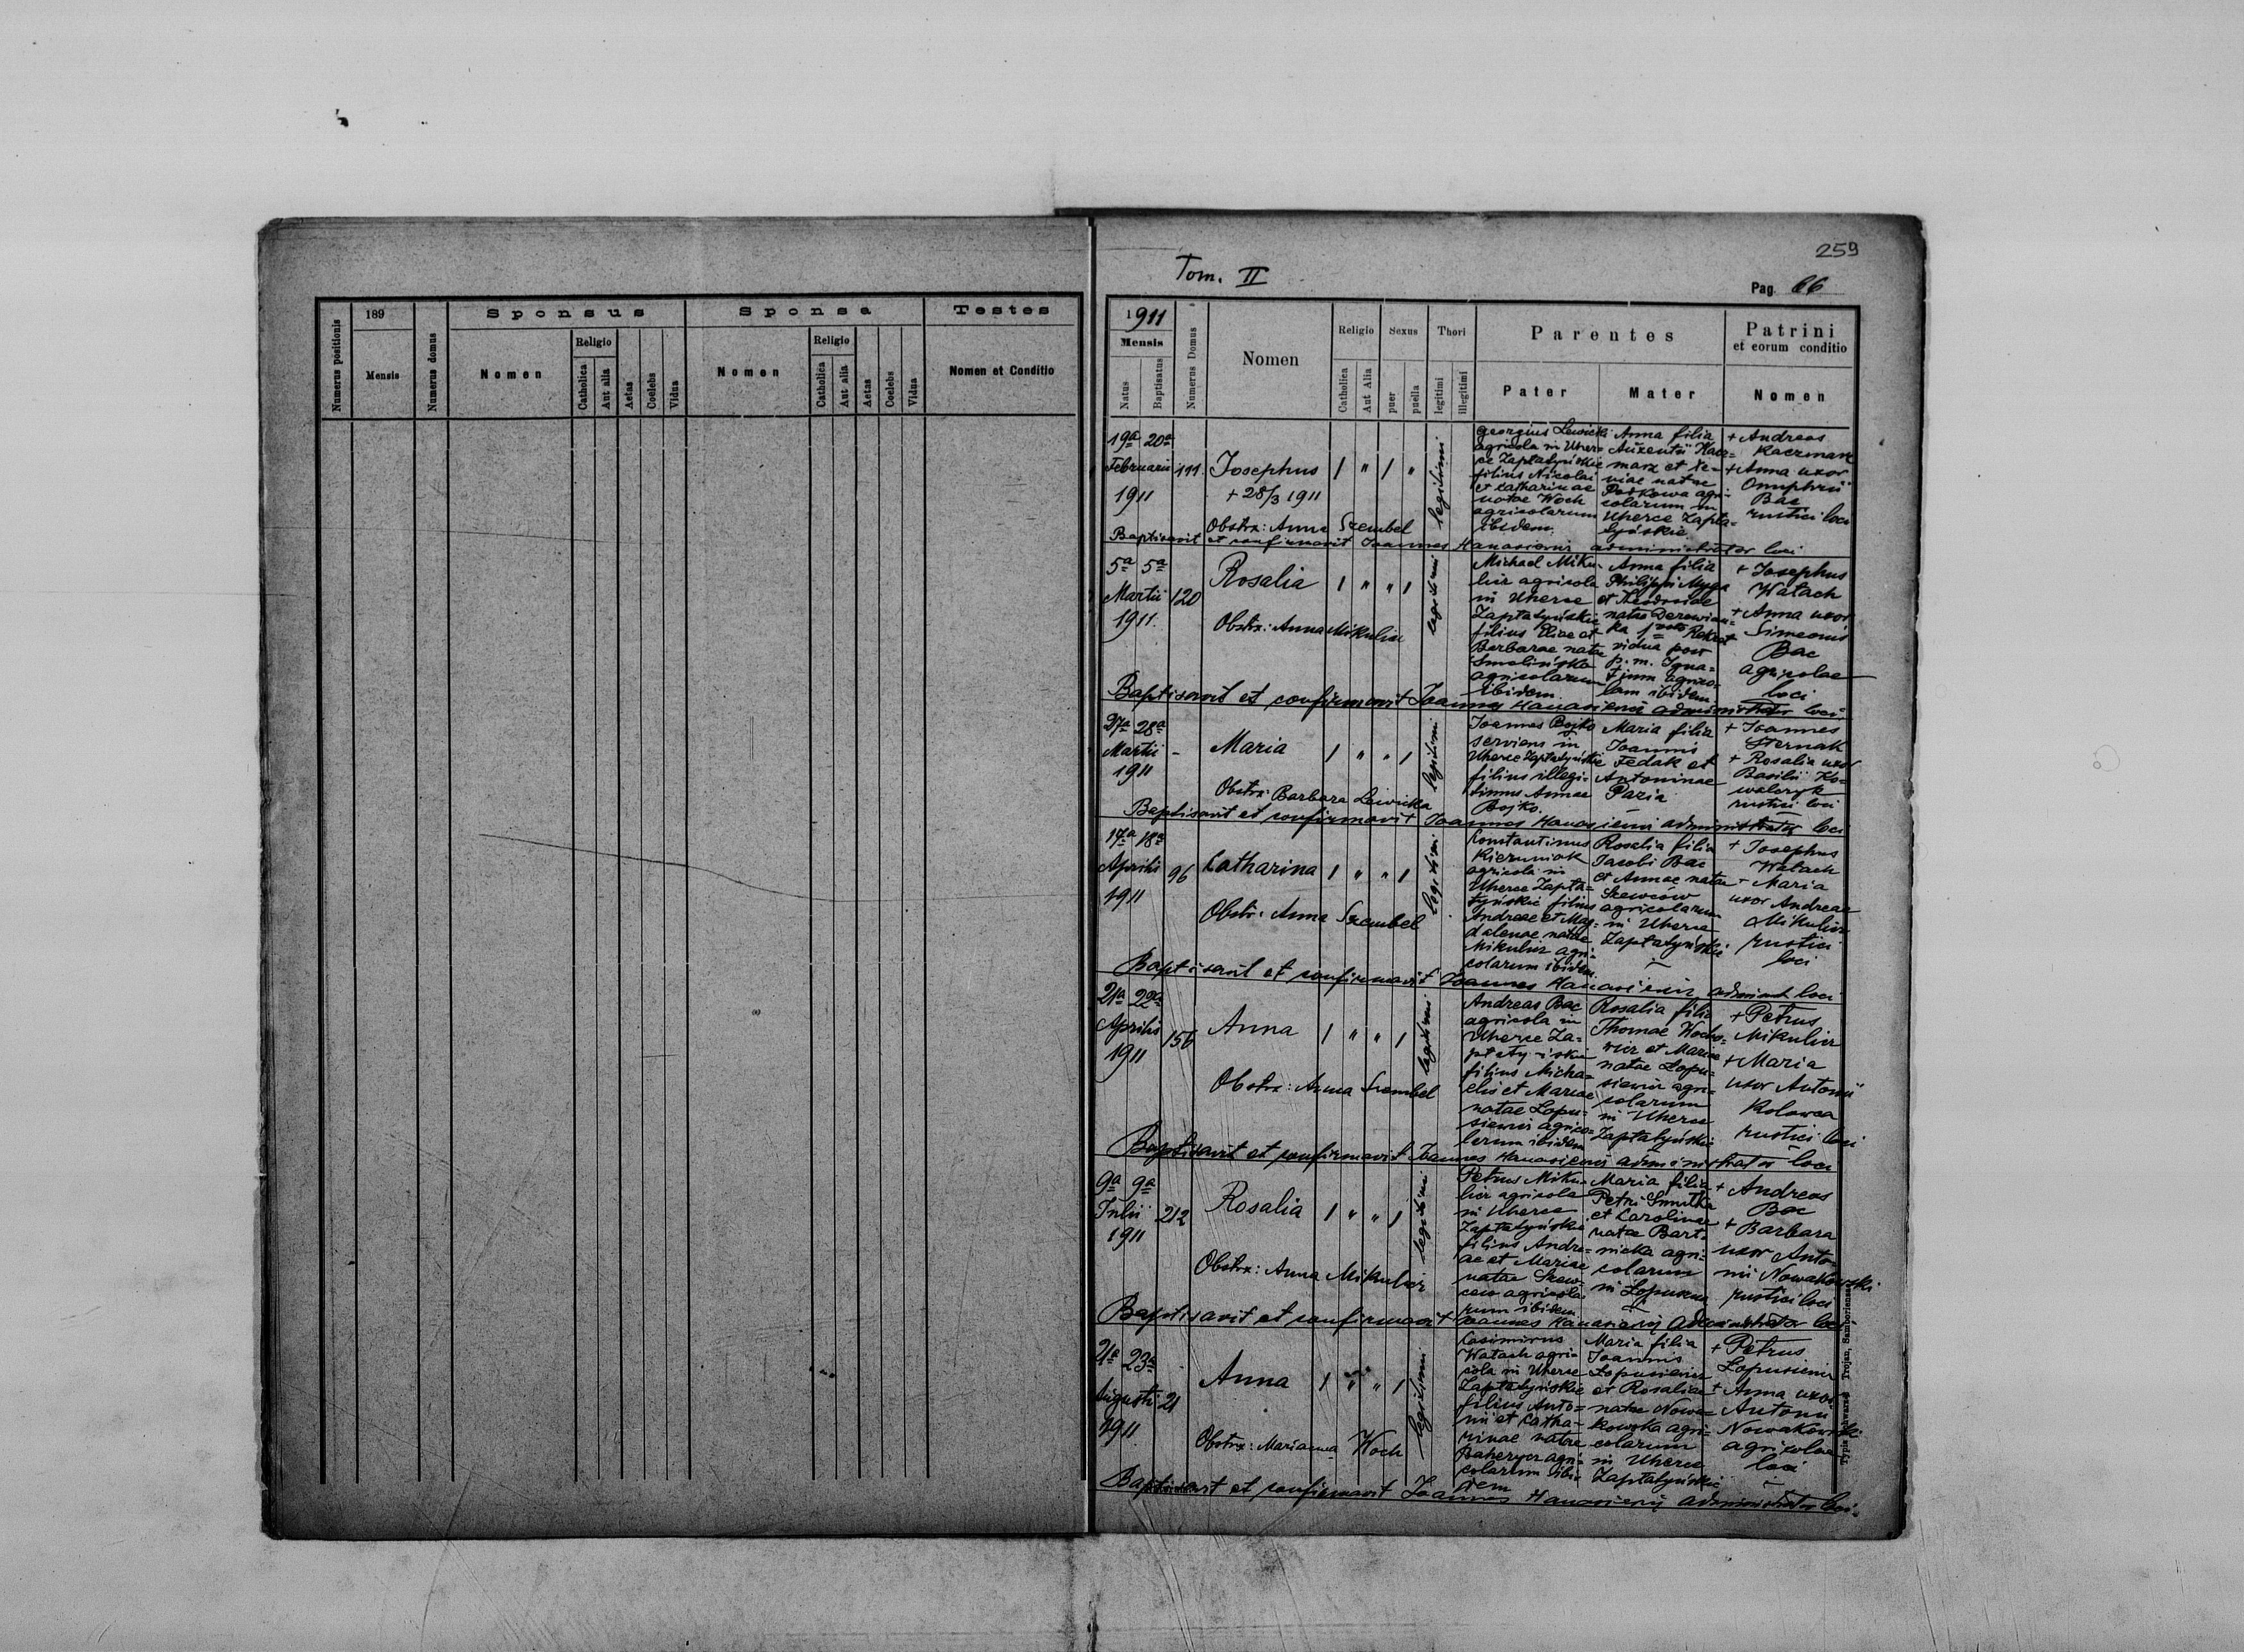 Numerus positionis
189
Mensis
Numerus domus
Sponsus
Nomen
Religio
Catholica
Aut alia
Aetas
Coelebs
Vidua
Sponsa
Nomen
Religio
Catholica
Aut alia
Aetas
Coelebs
Vidua
Testes
Nomen et Conditio
259
Tom. II
Pag. 66
1911
Mensis
Natus
Baptisatus
Numerus Domus
Nomen
Religio
Catholica
Aut Alia
Sexus
puer
puella
Thori
legitimi
illegitimi
Parentes
Pater
Mater
Patrini
et eorum conditio
Nomen
19a 20a
Februarii
1911
111
Josephus
+ 28/3 1911
Obstx: Anna Szembel
1 " 1 "
legitimi
Georgius Lewicki
agricola in Uher-
ce Zapłatyńskie
filius Nicolai
et Catharinae
natae Woch
agricolarum
ibidem.
Anna filia
Auxentii Kacz-
marz et Xe-
niae natae
agri-
colarum in
Uherce Zapła-
tyńskie.
+ Andreas
Kaczmarz
+ Anna uxor
Onuphrii
Bac
rustici loci
Baptisavit et confirmavit Joannes Hanasiewicz administrator loci
5a 5a
Martii
1911.
120
Rosalia
Obstx: Anna Mikulicz
1 " " 1
legitimi
Michael Miku-
licz agricola
in Uherce
Zapłatyńskie
filius Eliae et
Barbarae natae
Smolińska
agricolarum
ibidem.
Anna filia
Philippi Myga
et Theodosiae
natae Derewian-
ka 1 voto
vidua post
p. m. Igna-
tium agrico-
lam ibidem
+ Josephus
Watach
+ Anna uxor
Simeonis
Bac
agricolae
loci
Baptisavit et confirmavit Joannes Hanasiewicz administrator loci
27a 28a
Martii
1911
-
Maria
Obstx: Barbara Lewicka
1 " " 1
legitimi
Joannes Bojko
serviens in
Uherce Zapłatyńskie
filius illegi-
timus Annae
Bojko.
Maria filia
Joannis
Fedak et
Antoninae
Pazia
+ Joannes
Sternak
+ Rosalia uxor
Basilii Ko-
waleryk
rustici loci
Baptisavit et confirmavit Joannes Hanasiewicz administrator loci
17a 18a
Aprilis
1911
96
Catharina
Obstx: Anna Szembel
1 " " 1
legitimi
Constantinus
Kiezuniak
agricola in
Uherce Zapła-
tyńskie filius
Andreae et Mag-
dalenae natae
Mikulicz agri-
colarum ibidem.
Rosalia filia
Jacobi Bac
et Annae natae
Szewców
agricolarum
in Uherce
Zapłatyńskie
+ Josephus
Watach
+ Maria
uxor Andreae
Mikulicz
rustici
loci
Baptisavit et confirmavit Joannes Hanasiewicz administ loci
21a 22a
Aprilis
1911
156
Anna
Obstx: Anna Szembel
1 " " 1
legitimi
Andreas Bac
agricola in
Uherce Za-
płatyńskie
filius Micha-
elis et Mariae
natae Łopu-
siewicz agrico-
larum ibidem
Rosalia filia
Thomae Wocho-
wicz et Mariae
natae Łopu-
siewicz agri-
colarum
in Uherce
Zapłatyńskie
+ Petrus
Mikulicz
+ Maria
uxor Antonii
Kolowca
rustici loci
Baptisavit et confirmavit Joannes Hanasiewicz administrator loci
9a 9a
Julii
1911
212
Rosalia
Obstx: Anna Mikulicz
1 " " 1
legitimi
Petrus Miku-
licz agricola
in Uherce
Zapłatyńskie
filius Andre-
ae et Mariae
natae Szew-
ców agricola-
rum ibidem
Maria filia
Petri Smutka
et Carolinae
natae Bart-
nicka agri-
colarum
in Łopuszna
+ Andreas
Bac
+ Barbara
uxor Anto-
nii Nowakowski
rustici loci
Baptisavit et confirmavit Joannes Hanasiewicz administrator loci
21a 23a
Augusti
1911
21
Anna
Obstx: Marianna Woch
1 " " 1
legitimi
Casimirus
Watach agri-
cola in Uherce
Zapłatyńskie
filius Anto-
nii et Catha-
rinae natae
agri-
colarum ibi-
dem
Maria filia
Joannis
Łopusiewicz
et Rosaliae
natae Nowa-
kowska agri-
colarum
in Uherce
Zapłatyńskie
+ Petrus
Łopusiewicz
+ Anna uxor
Antonii
Nowakowski
agricolae
loci
Baptisavit et confirmavit Joannes Hanasiewicz administrator loci.
Typis Schwarz & Trojan, Samborienses